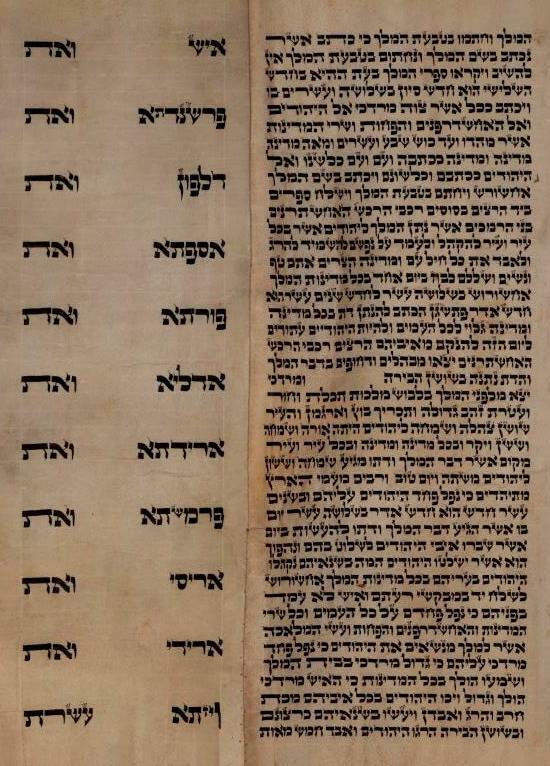 המלך וחתמו בטבעת המלך כי כתב אשר
נכתב בשם המלך ונחתום בטבעת המלך אין
להשיב ויקראו ספרי המלך בעת ההיא בחדש
השלישי הוא חדש סיון בשלושה ועשרים בו
ויכתב ככל אשר צוה מרדכי אל היהודים
ואל האחשדרפנים והפחות ושרי המדינות
אשר מהדו ועד כוש שבע ועשרים ומאה מדינה
מדינה ומדינה ככתבה ועם ועם כלשנו ואל
היהודים ככתבם וכלשונם ויכתב בשם המלך
אחשורש ויחתם בטבעת המלך וישלח ספרים
ביד הרצים בסוסים רכבי הרכש האחשתרנים
בני הרמכים אשר נתן המלך ליהודים אשר בכל
עיר ועיר להקהל ולעמד על נפשם להשמיד להרג
ולאבד את כל חיל עם ומדינה הצרים אתם טף
ונשים ושללם לבוז ביום אחד בכל מדינות המלך
אחשורוש בשלושה עשר לחדש שנים עשר הוא
חדש אדר פתשגן הכתב להנתן דת בכל מדינה
ומדינה גלוי לכל העמים ולהיות היהודיים עתודים
ליום הזה להנקם מאיביהם הרצים רכבי הרכש
האחשתרנים יצאו מבהלים ודחופים בדבר המלך
והדת נתנה בשושן הבירה ומרדכי
יצא מלפני המלך בלבוש מלכות תכלת וחור
ועטרת זהב גדולה ותכריך בוץ וארגמן והעיר
שושן צהלה ושמחה ליהודים היתה אורה ושמחה
וששן ויקר ובכל מדינה ומדינה ובכל עיר ועיר
מקום אשר דבר המלך ודתו מגיע שמחה וששון
ליהודים משתה ויום טוב ורבים מעמי הארץ
מתיהדים כי נפל פחד היהודים עליהם ובשנים
עשר חדש הוא חדש אדר בשלושה עשר יום
בו אשר הגיע דבר המלך ודתו להעשות ביום
אשר שברו איבי היהודים לשלוט בהם ונהפוך
הוא אשר ישלטו היהודים המה בשנאיהם נקהלו
היהודים בעריהם בכל מדינות המלך אחשורוש
לשלח יד במבקשי רעתם ואיש לא עמד
בפניהם כי נפל פחדם על כל העמים וכל שרי
המדינות והאחשדרפנים והפחות ועשי המלאכה
אשר למלך מנשאים את היהודים כי נפל פחד
מרדכי עליהם כי גדול מרדכי בבית המלך
ושמעו הולך בכל המדינות כי האיש מרדכי
הולך וגדול ויכו היהודים בכל איביהם מכת
חרב והרג ואבדן ויעשו בשנאיהם כרצונם
ובשושן הבירה הרגו היהודים ואבד חמש מאות
איש ואת
פרשנדתא ואת
דלפון ואת
אספתא ואת
פורתא ואת
אדליא ואת
ארידתא ואת
פרמשתא ואת
אריסי ואת
ארידי ואת
ויזתא עשרת